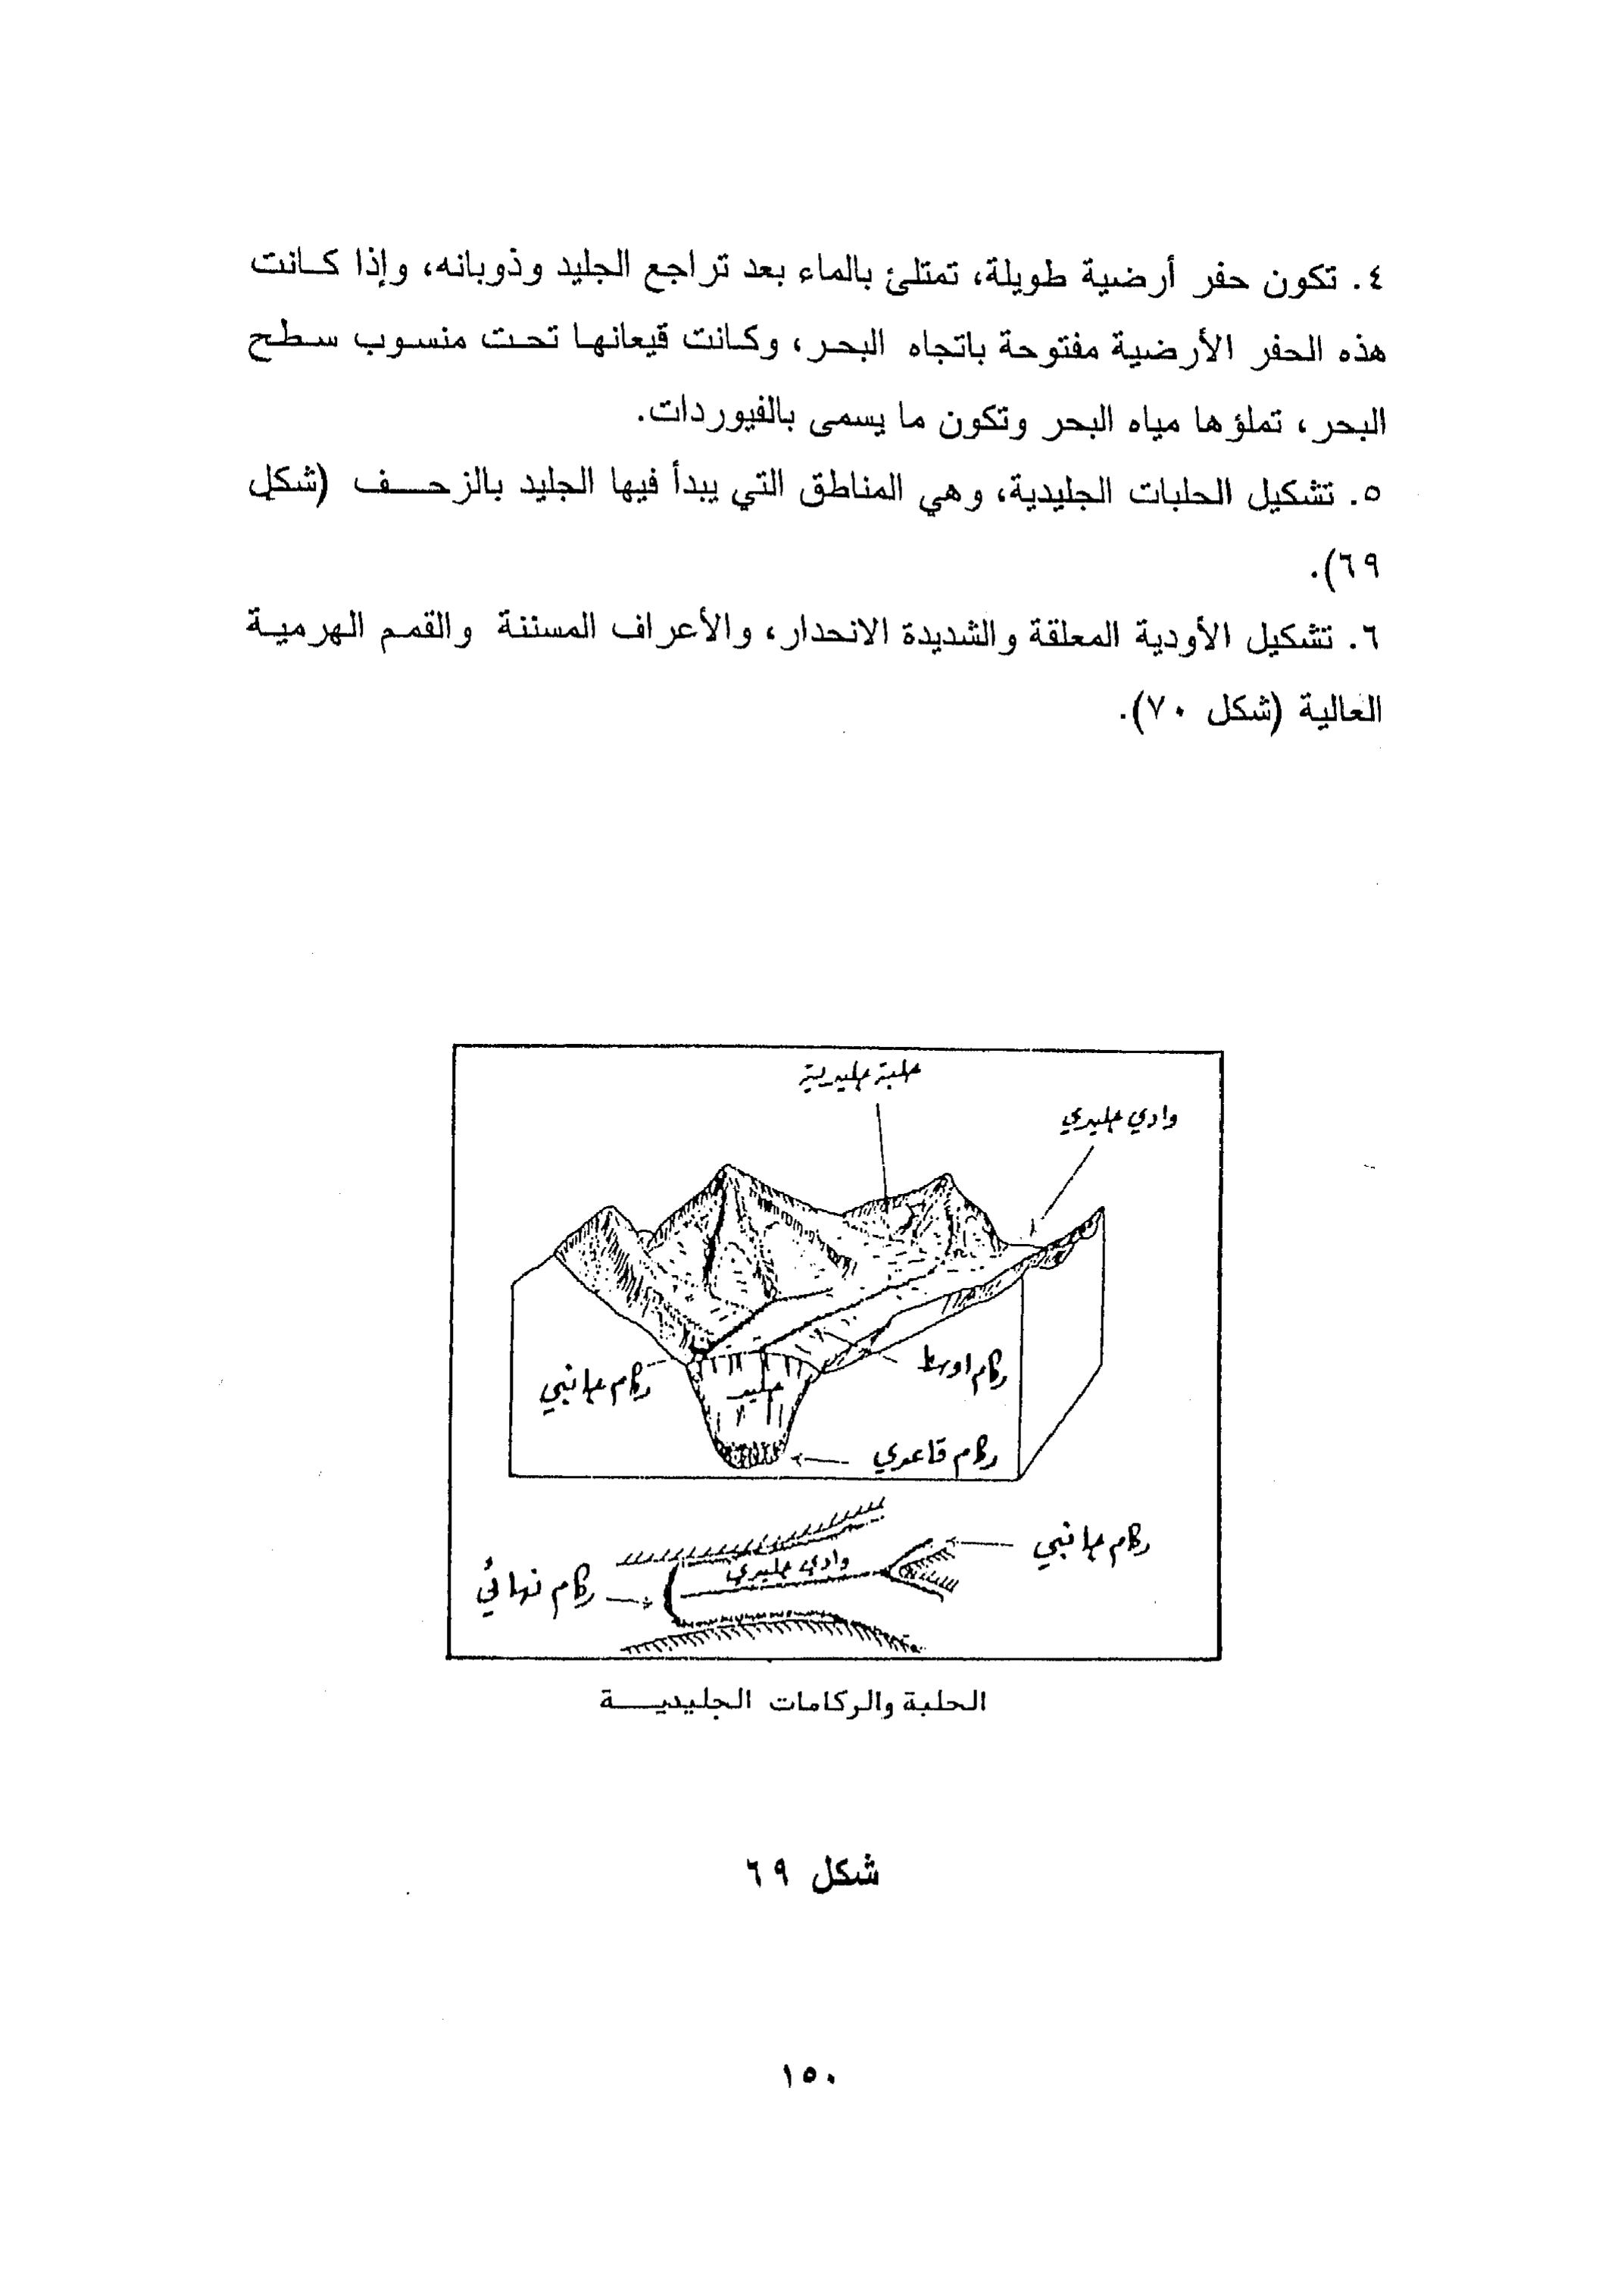 ٤. تكون حفر أرضية طويلة، تمتلئ بالماء بعد تراجع الجليد وذوبانه، وإذا كانت
هذه الحفر الأرضية مفتوحة باتجاه البحر، وكانت قيعانها تحت منسوب سطح
البحر، تملؤها مياه البحر وتكون ما يسمى بالفيوردات.
٥. تشكيل الحلبات الجليدية، وهي المناطق التي يبدأ فيها الجليد بالزحف (شكل
٦٩).
٦. تشكيل الأودية المعلقة والشديدة الانحدار، والأعراف المسننة والقمم الهرمية
العالية (شكل ٧٠).
حلبة جليدية
وادي جليدي
ركام اوسط
ركام جانبي
جليد
ركام قاعدي
ركام جانبي
وادي جليدي
ركام نهائي
الحلبة والركامات الجليدية
شكل ٦٩
١٥٠